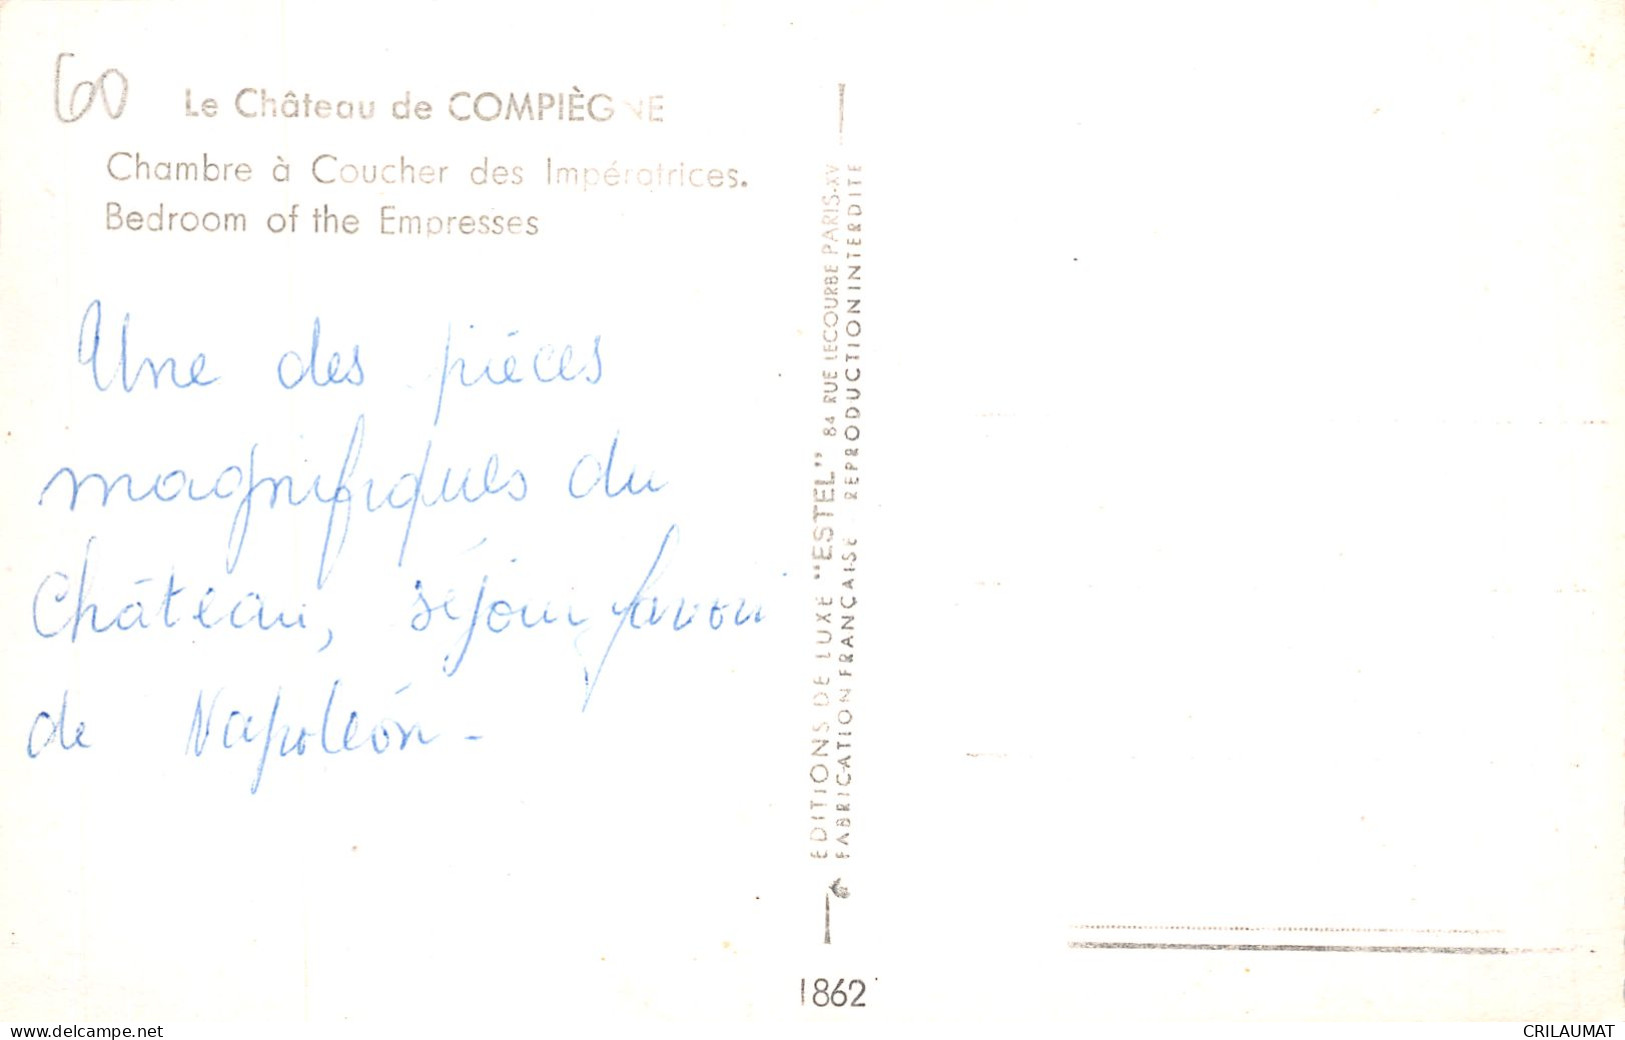 60
Le Château de COMPIÈGNE
Chambre à Coucher des Impératrices.
Bedroom of the Empresses
Une des pièces
magnifiques du
Château, séjour favori
de Napoléon -
EDITIONS DE LUXE "ESTEL" 84 RUE LECOURBE PARIS-XV
FABRICATION FRANÇAISE REPRODUCTION INTERDITE
1862
www.delcampe.net
CRILAUMAT